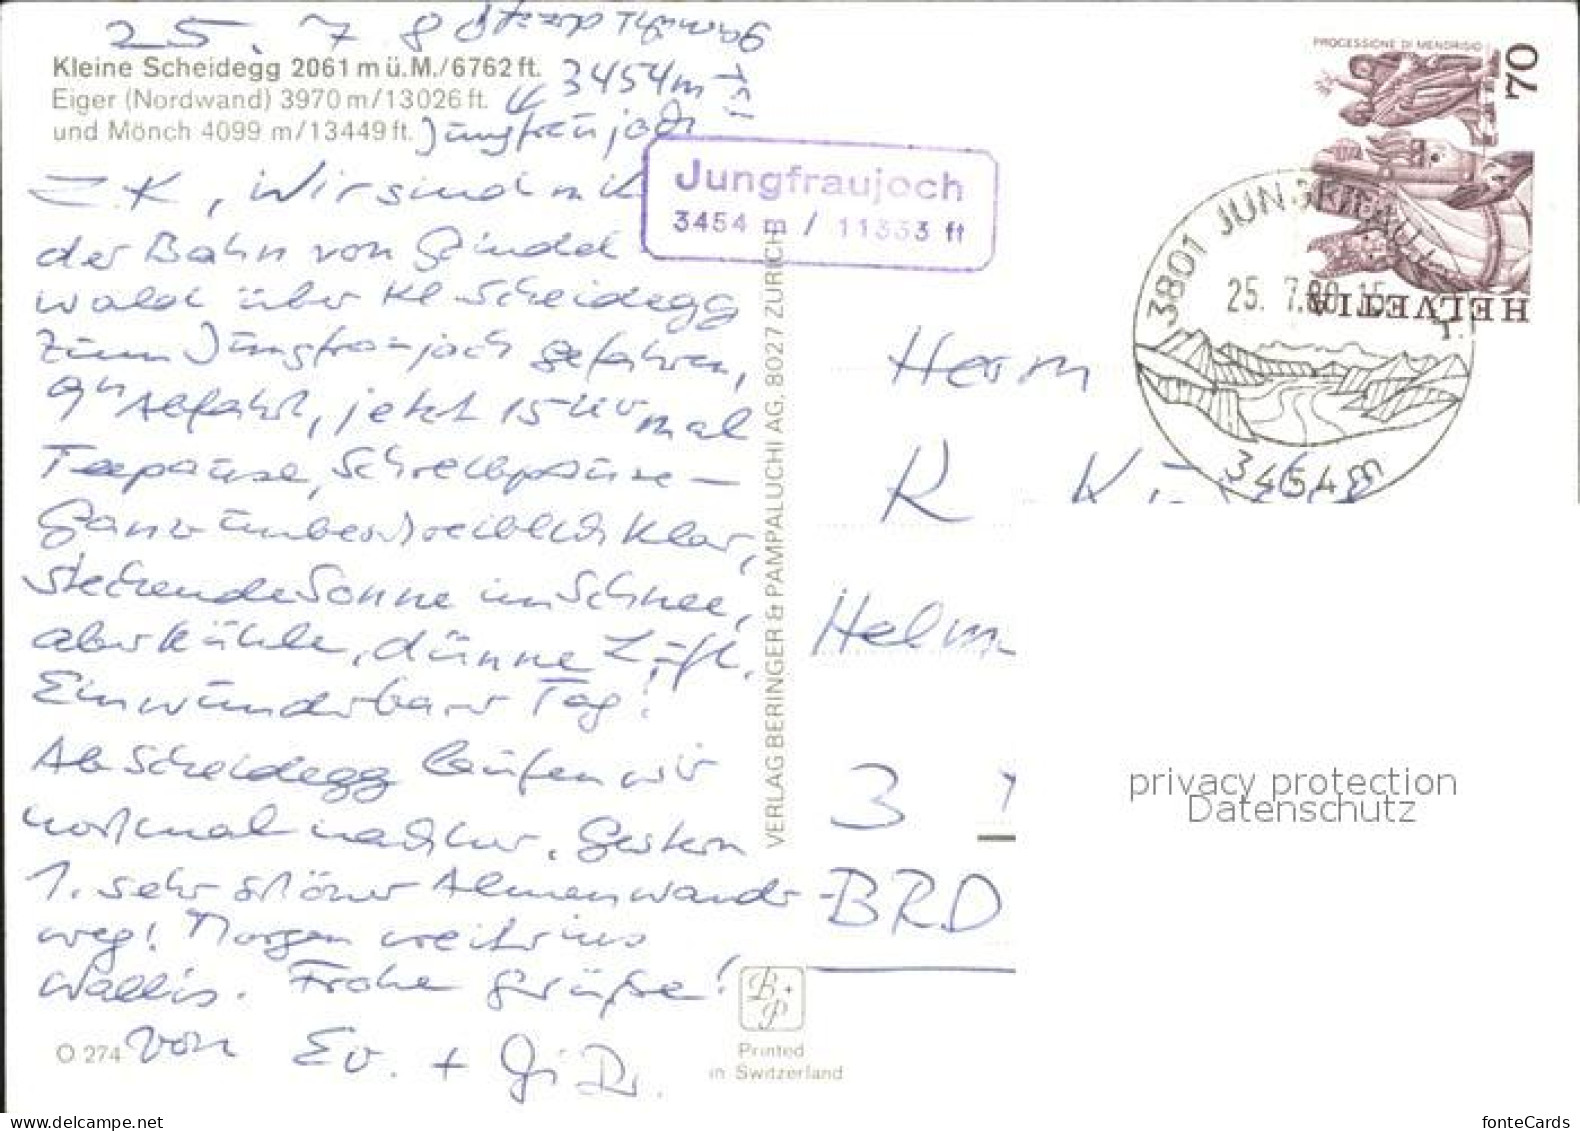 25. 7. 80
Kleine Scheidegg 2061 m ü.M./6762 ft.
Eiger (Nordwand) 3970 m/13026 ft.
und Mönch 4099 m/13449 ft.
3454m
Jungfraujoch
Jungfraujoch
3454 m / 11333 ft
Z.K, Wir sind mit
der Bahn von Grindel
wald über Kl Scheidegg
zum Jungfraujoch gefahren,
9h Abfahrt, jetzt 15 Uhr mal
Teepause, Schreibpause –
Ganz unbeschreiblich klar,
stechende Sonne im Schnee,
aber kühle, dünne Luft.
Ein wunderbarer Tag!
Ab Scheidegg laufen wir
nochmal nachher. Gestern
1. sehr schöner Almenwander
weg! Morgen weiter ins
Wallis. Frohe Grüße!
von Ev. +
O 274
VERLAG BERINGER & PAMPALUCHI AG. 8027 ZÜRICH
B+P
Printed
in Switzerland
PROCESSIONE DI MENDRISIO
70
HELVETIA
3801 JUNGFRAUJOCH
25. 7.80.15
3454m
Herrn
R. K
Helm
3
BRD
privacy protection
Datenschutz
www.ansichtskartenversand.com
fonteCards